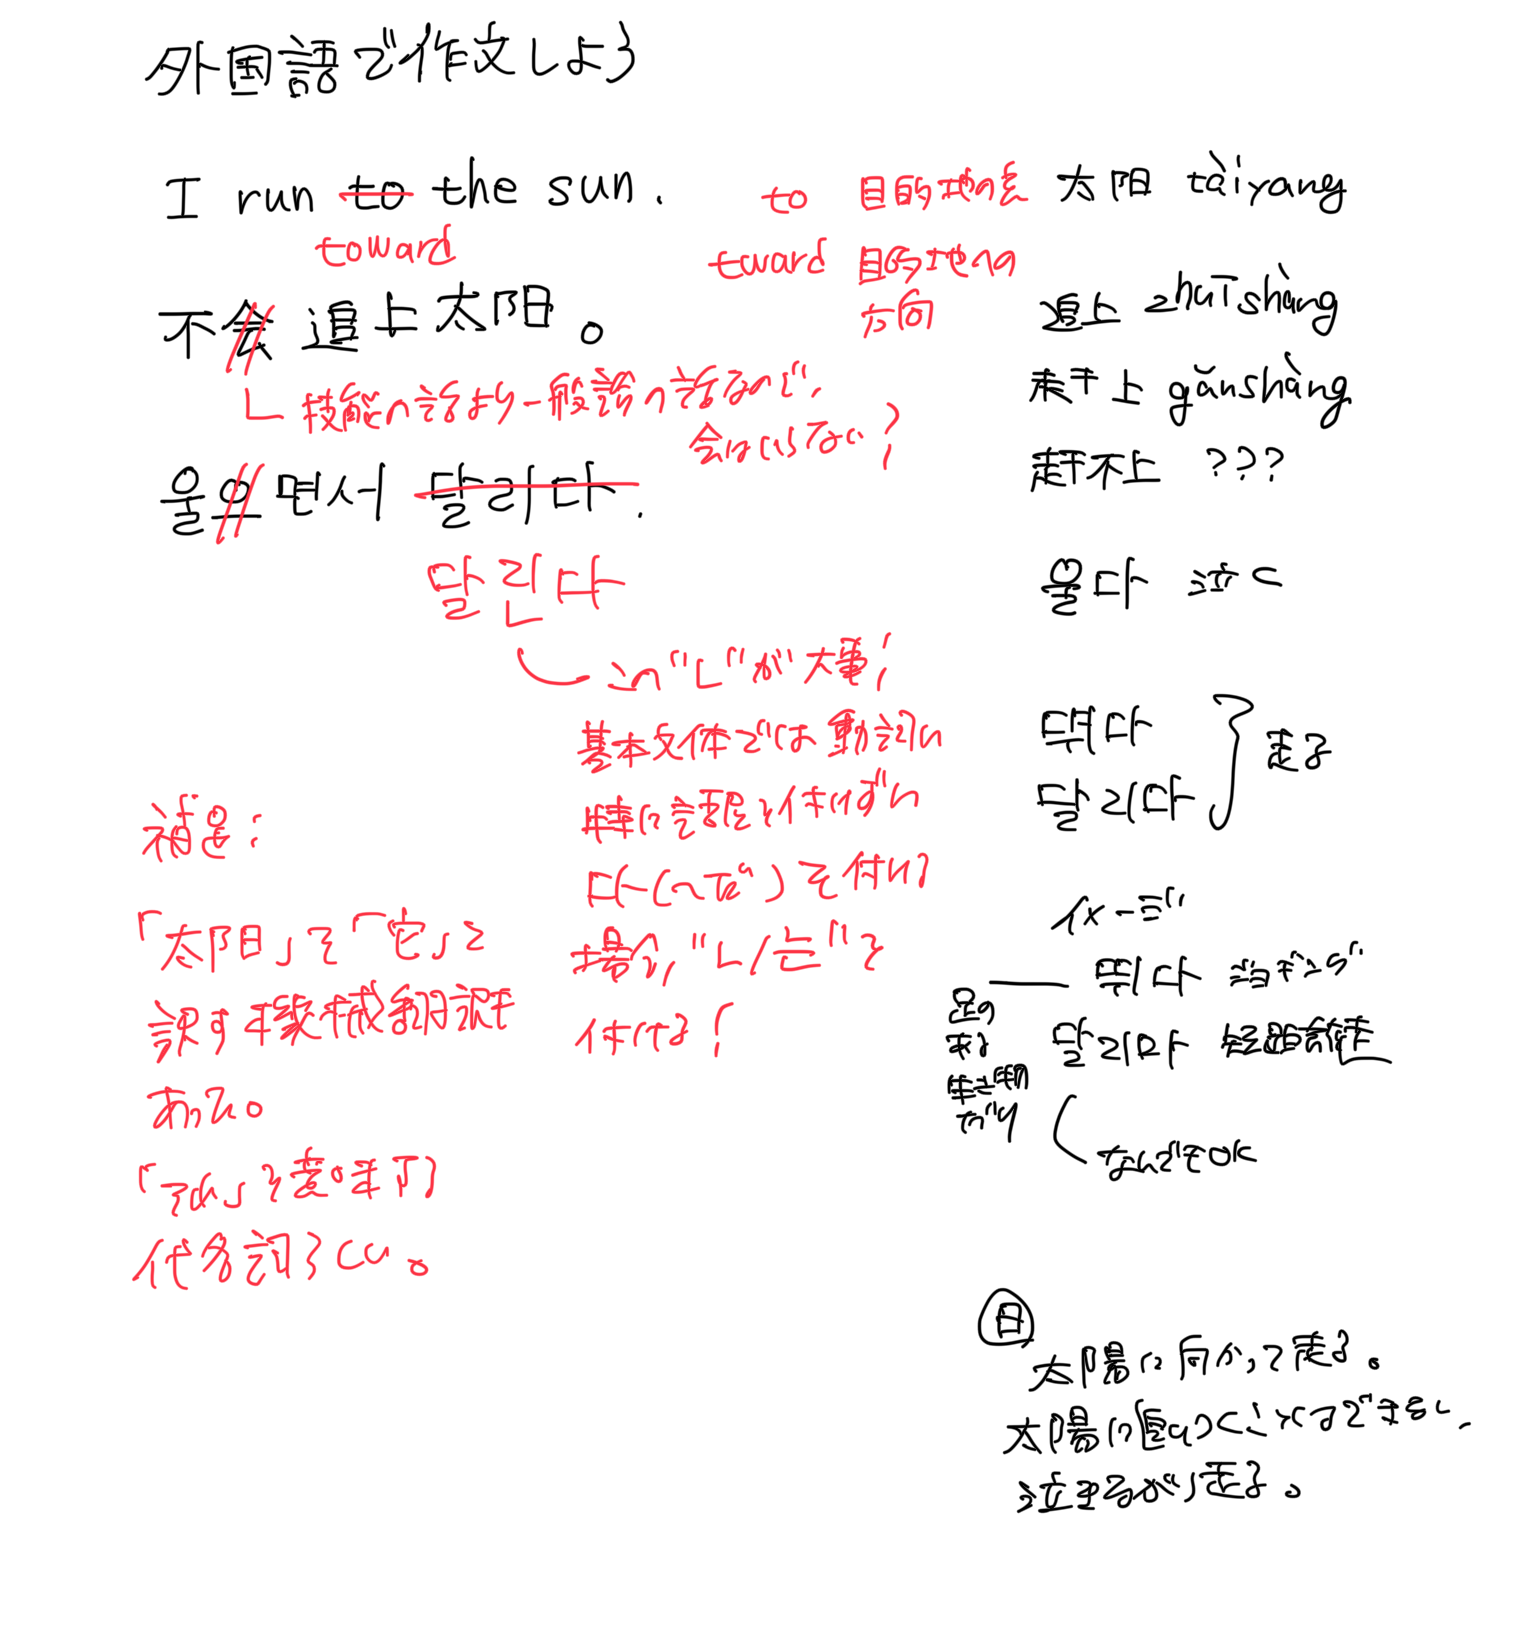 外国語で作文しよう
I run to the sun.
toward
to 目的地の点
tward 目的地への
方向
不会追上太阳。
技能の話より一般論の話なので、
会はいらない?
울으면서 달리다.
달린다
この"ㄴ"が大事!
基本文体では動詞に
特に語尾を付けずに
다(〜だ)を付ける
場合、"ㄴ/는"を
付ける!
補足:
「太阳」を「它」と
訳す機械翻訳も
あった。
「それ」を意味する
代名詞らしい。
太阳 tàiyang
追上 zhuīshàng
赶上 gǎnshàng
赶不上 ???
울다 泣く
뛰다
달리다
走る
イメージ
뛰다 ジョギング
달리다 短距離走
足の
ある
生き物
だけ
なんでもOK
日
太陽に向かって走る。
太陽に追いつくことはできない、
泣きながら走る。